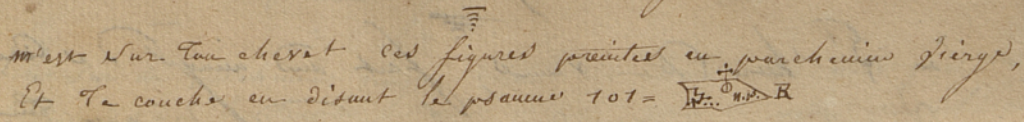 m'est sur ton chevet ces figures peintes en parchemin vierge,
Et te couche en disant le psaume 101=